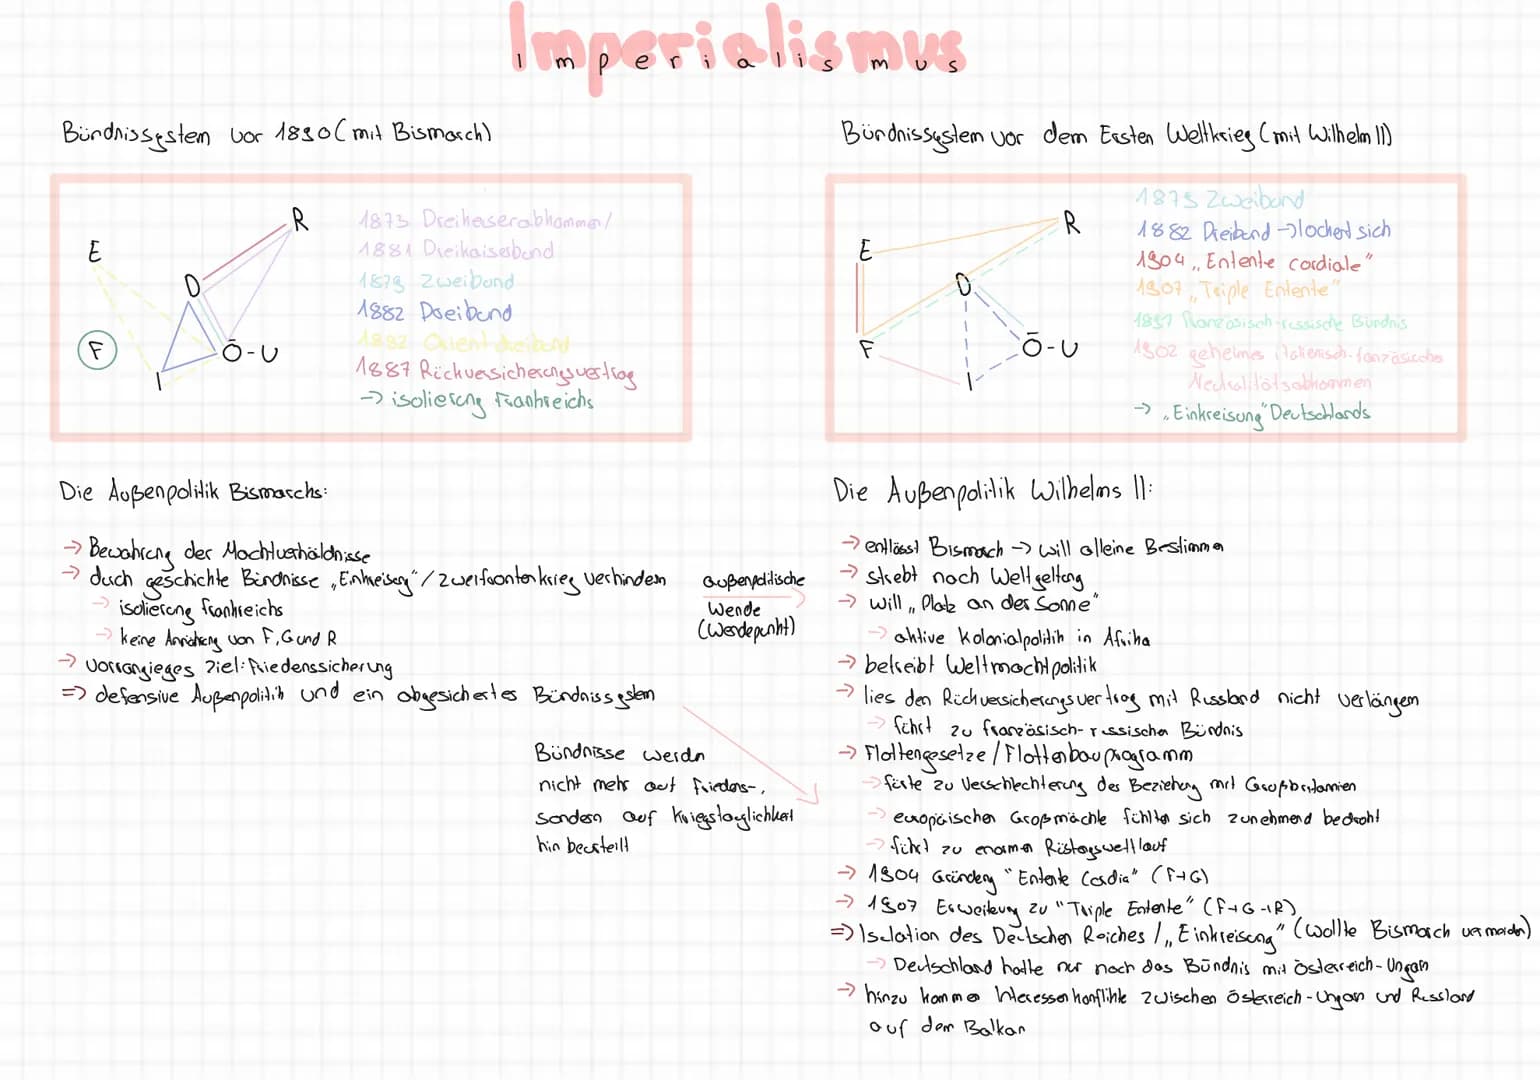 Imperialismus
Bündnissystem vor 1890 (mit Bismarck)
E
R
D
F
Ö-U
I
1873 Dreikaiserabkommen/
1881 Dreikaiserbund
1879 Zweibund
1882 Dreibund
1882 Orientdreibund
1887 Rückversicherungsvertrag
-> isolierung Frankreichs
Bündnissystem vor dem Ersten Weltkrieg (mit Wilhelm II)
E
R
D
F
Ö-U
I
1879 Zweibund
1882 Dreibund -> lockert sich
1904 „Entente cordiale"
1907 „Triple Entente"
französisch-russische Bündnis
1902 geheimes italienisch-französisches
Neutralitätsabkommen
-> „Einkreisung" Deutschlands
Die Außenpolitik Bismarcks:
-> Bewahrung der Machtverhäldnisse
-> duch geschichte Bündnisse „Einkreisung"/Zweifrontenkrieg verhindern
-> isolierung frankreichs
-> keine von F, G und R
-> vorrangieges Ziel: Friedenssicherung
=> defensive Außenpolitik und ein abgesichertes Bündnissystem
außenpolitische
Wende
(Wendepunkt)
Bündnisse werdn
nicht mehr auf Friedens-,
sondern auf Kriegstauglichkeit
hin beurteilt
Die Außenpolitik Wilhelms II:
-> entlässt Bismarck -> will alleine Bestimmen
-> strebt nach Weltgeltung
-> will „Platz an der Sonne"
-> aktive Kolonialpolitik in Afrika
-> betreibt Weltmachtpolitik
-> lies den Rückversicherungsvertrag mit Russland nicht verlängern
-> führt zu französisch-russischen Bündnis
-> Flottengesetze/Flottenbauprogramm
-> fürte zu Verschlechterung der Beziehung mit Großbritannien
-> europäischen Großmächte fühlten sich zunehmend bedroht
-> führt zu enormen Rüstungswettlauf
-> 1904 Gründung "Entente Cordia" (F+G)
-> 1907 Erweiterung zu "Triple Entente" (F+G+R)
=> Isolation des Deutschen Reiches/„Einkreisung" (wollte Bismarck vermeiden)
-> Deutschland hatte nur noch das Bündnis mit Österreich-Ungarn
-> hinzu kommen Interessenkonflikte zwischen Österreich-Ungarn und Russland
auf dem Balkan